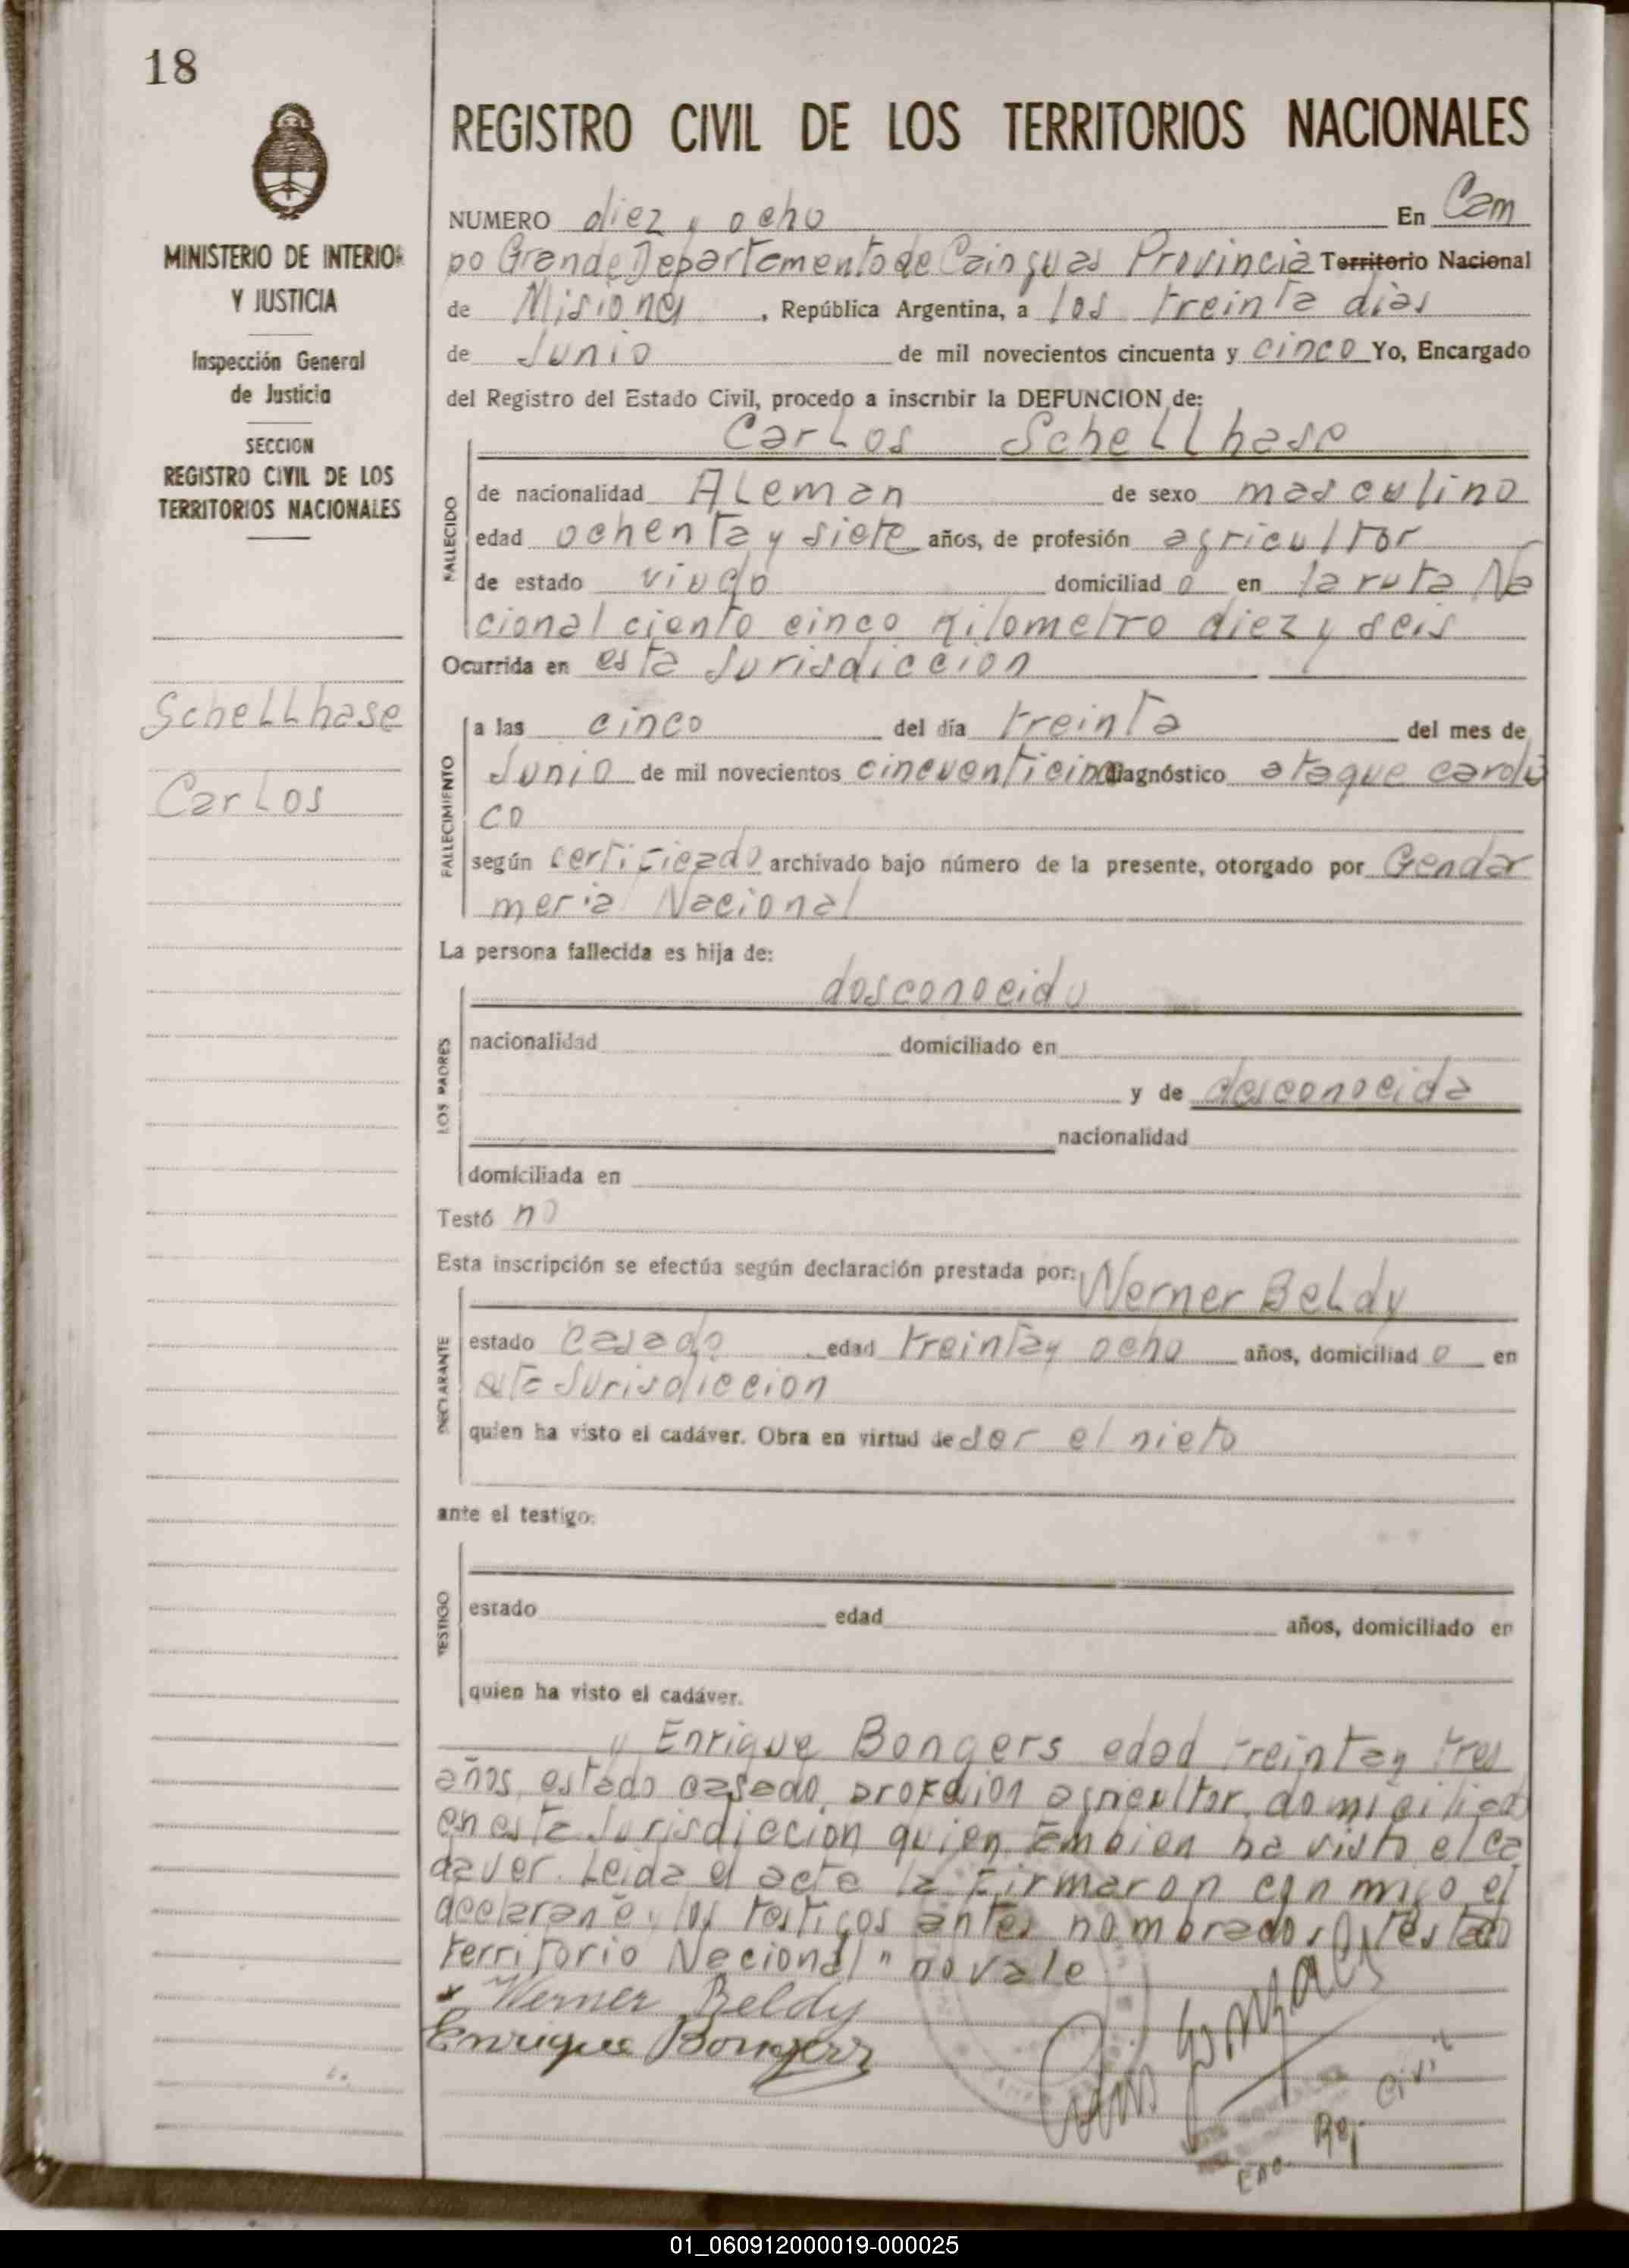 18
MINISTERIO DE INTERIOR
Y JUSTICIA
Inspección General
de Justicia
SECCION
REGISTRO CIVIL DE LOS
TERRITORIOS NACIONALES
Schellhase
Carlos
REGISTRO CIVIL DE LOS TERRITORIOS NACIONALES
NUMERO diez y ocho En Cam
po Grande Departamento de Cainguas Provincia Territorio Nacional
de Misiones, República Argentina, a los treinta dias
de Junio de mil novecientos cincuenta y cinco Yo, Encargado
del Registro del Estado Civil, procedo a inscribir la DEFUNCION de:
Carlos Schellhase
FALLECIDO
de nacionalidad Aleman de sexo masculino
edad ochenta y siete años, de profesión agricultor
de estado viudo domiciliad o en la ruta Na
cional ciento cinco Kilometro diez y seis
Ocurrida en esta Jurisdiccion
FALLECIMIENTO
a las cinco del día treinta del mes de
Junio de mil novecientos cincuenticinco diagnóstico ataque cardia
co
según certificado archivado bajo número de la presente, otorgado por Gendar
meria Nacional
La persona fallecida es hija de:
LOS PADRES
desconocido
nacionalidad domiciliado en
y de desconocida
nacionalidad
domiciliada en
Testó no
Esta inscripción se efectúa según declaración prestada por: Werner Beldy
DECLARANTE
estado casado edad treinta y ocho años, domiciliad o en
esta Jurisdiccion
quien ha visto el cadáver. Obra en virtud de ser el nieto
ante el testigo:
TESTIGO
estado edad años, domiciliado en
quien ha visto el cadáver.
y Enrique Bongers edad treinta y tres
años, estado casado, profesion agricultor, domiciliado
en esta Jurisdiccion quien tambien ha visto el ca
daver. Leida el acta la firmaron conmigo el
declarante y los testigos antes nombrados, testado
territorio Nacional" no vale
Werner Beldy
Enrique Bongers
Luis Gonzales
Enc. Reg. Civil
01_060912000019-000025